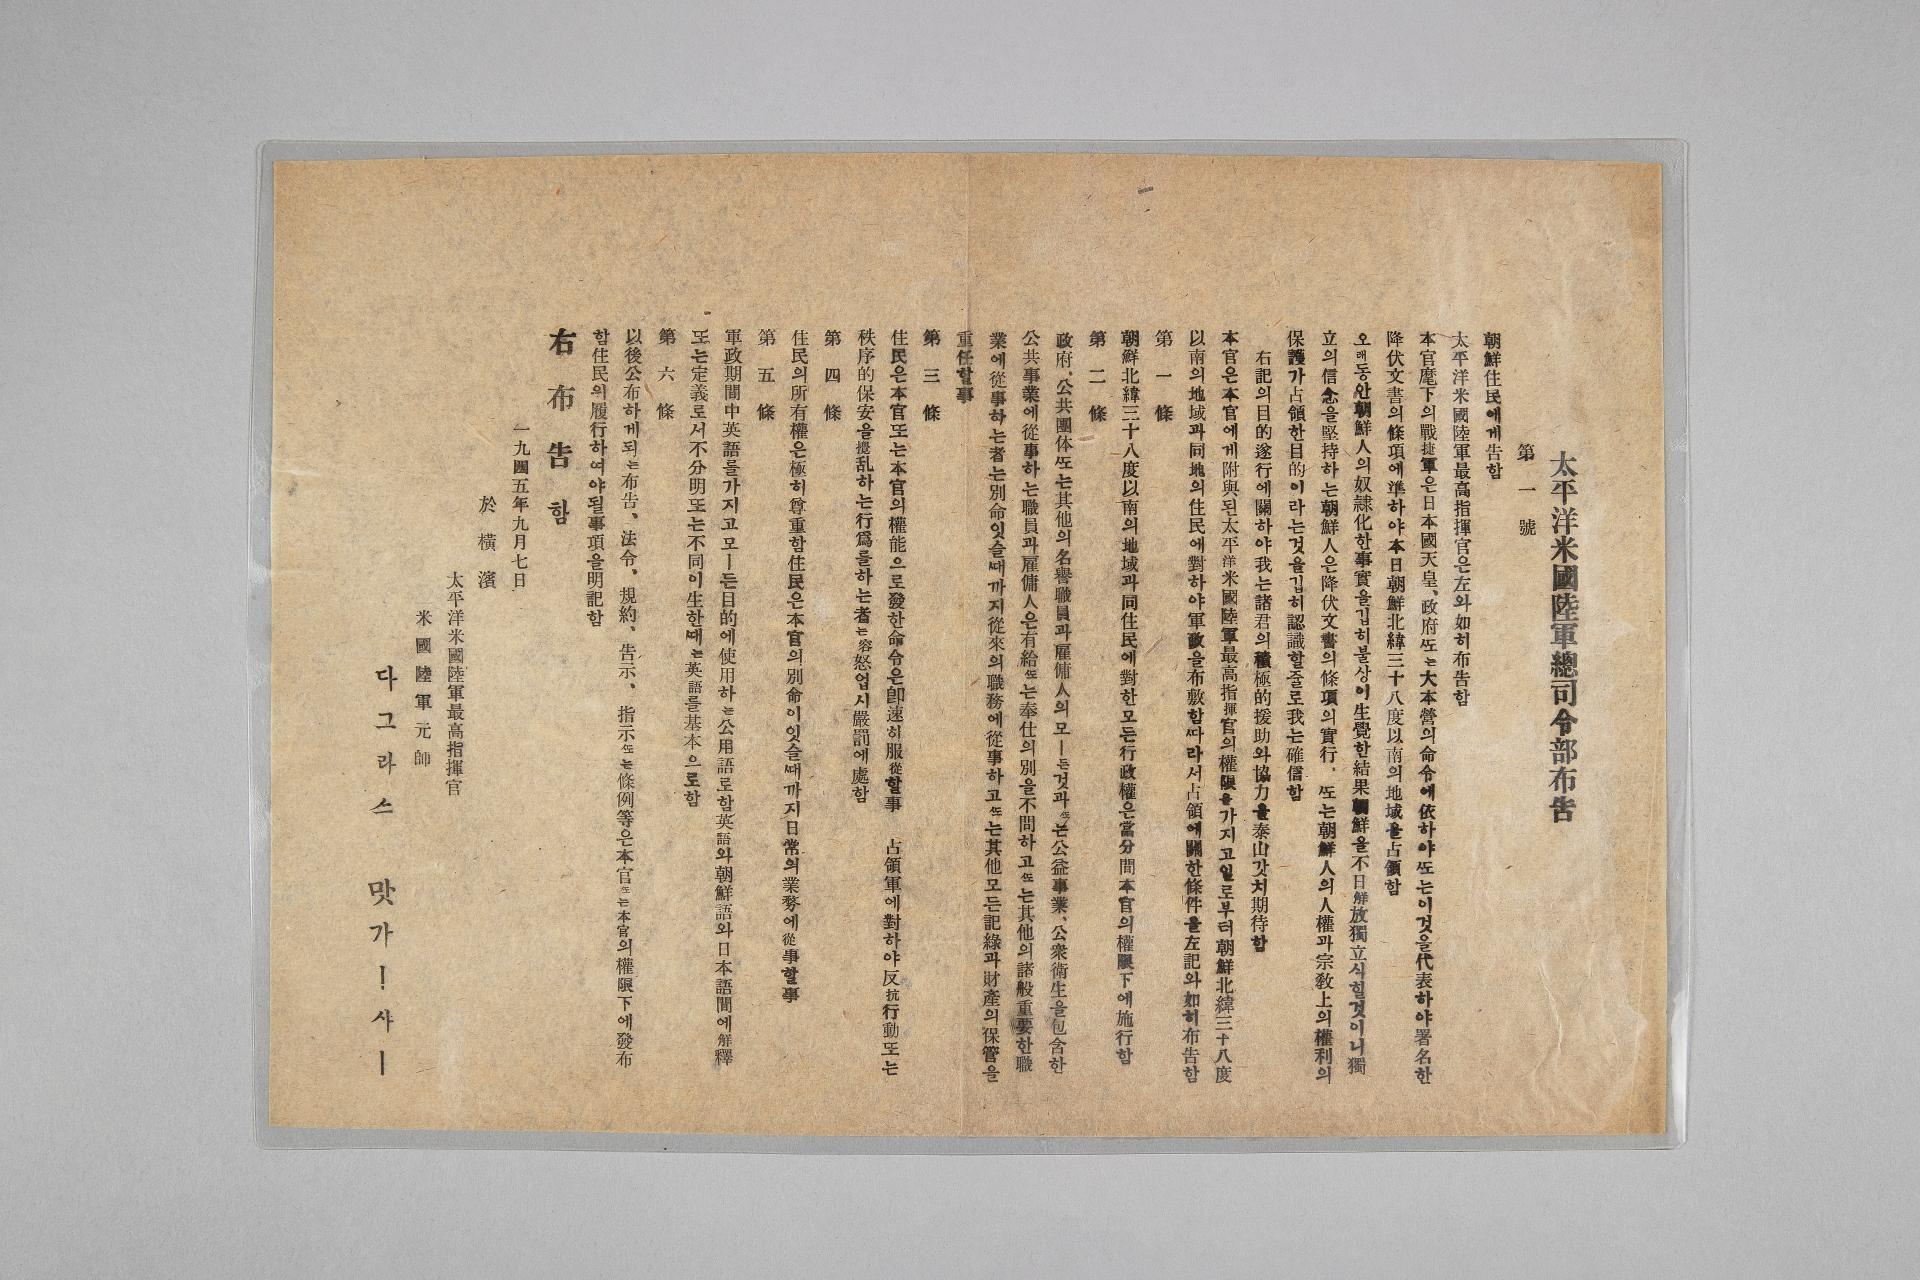 太平洋米國陸軍總司令部布告
第一號
朝鮮住民에게告함
太平洋米國陸軍最高指揮官은左와如히布告함
本官麾下의戰捷軍은日本國天皇、政府또는大本營의命令에依하야또는이것을代表하야署名한
降伏文書의條項에準하야本日朝鮮北緯三十八度以南의地域을占領함
오래동안朝鮮人의奴隷化한事實을깁히불상이生覺한結果朝鮮을不日解放獨立식힐것이니獨
立의信念을堅持하는朝鮮人은降伏文書의條項의實行、또는朝鮮人의人權과宗敎上의權利의
保護가占領한目的이라는것을깁히認識할줄로我는確信함
右記의目的遂行에關하야我는諸君의積極的援助와協力을泰山갓치期待함
本官은本官에게附與된太平洋米國陸軍最高指揮官의權限을가지고일로부터朝鮮北緯三十八度
以南의地域과同地의住民에對하야軍政을布敷함따라서占領에關한條件을左記와如히布告함
第一條
朝鮮北緯三十八度以南의地域과同住民에對한모든行政權은當分間本官의權限下에施行함
第二條
政府、公共團体또는其他의名譽職員과雇傭人의모ー든것과또는公益事業、公衆衛生을包含한
公共事業에從事하는職員과雇傭人은有給또는奉仕의別을不問하고또는其他의諸般重要한職
業에從事하는者는別命잇슬때까지從來의職務에從事하고또는其他모든記綠과財產의保管을
重任할事
第三條
住民은本官또는本官의權能으로發한命令은卽速히服從할事 占領軍에對하야反抗行動또는
秩序的保安을攪乱하는行爲를하는者는容怒업시嚴罰에處함
第四條
住民의所有權은極히尊重함住民은本官의別命이잇슬때까지日常의業務에從事할事
第五條
軍政期間中英語를가지고모ー든目的에使用하는公用語로함英語와朝鮮語와日本語間에解釋
또는定義로서不分明또는不同이生한때는英語를基本으로함
第六條
以後公布하게되는布告、法令、規約、告示、指示또는條例等은本官또는本官의權限下에發布
함住民의履行하여야될事項을明記함
右布告함
一九四五年九月七日
於橫濱
太平洋米國陸軍最高指揮官
米國陸軍元帥
다그라스 맛가ー사ー